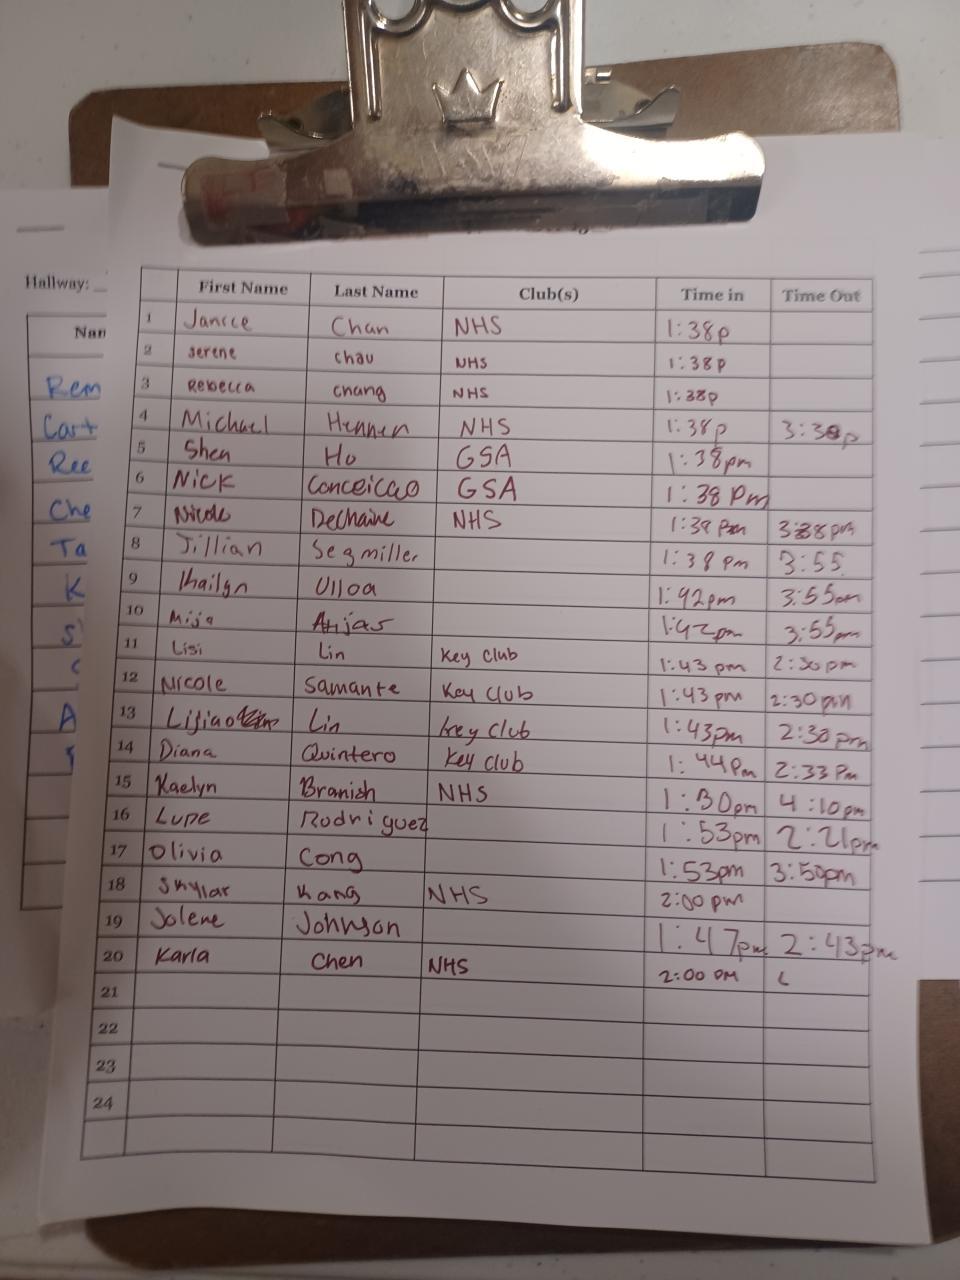 Hallway:
First Name Last Name Club(s) Time in Time Out
1 Janice Chan NHS 1:38p
2 serene chau NHS 1:38P
3 Rebecca chang NHS 1:38p
4 Michael Hennen NHS 1:38p
5 Shea Ho GSA 1:38pm
6 Nick Conceicao GSA 1:38 Pm
7 Nicole Dechaine NHS
8 Jillian Segmiller 1:38 pm 3:55
9 Ulloa 1:42pm 3:55pm
10 1:42pm 3:55pm
11 Lisi Lin Key Club 1:43 pm 2:30pm
12 Nicole Samante Key Club 1:43pm 2:30pm
13 Lin key Club 1:43pm 2:30 pm
14 Diana Quintero Key Club 1:44Pm 2:33 Pm
15 Kaelyn Branish NHS 4:10pm
16 Lupe Rodriguez 1:53pm 2:21pm
17 Olivia Cong 1:53pm 3:50pm
18 Skylar Kang NHS 2:00 pm
19 Jolene Johnson 1:47pm 2:43pm
20 Karla Chen NHS 2:00 PM
21
22
23
24